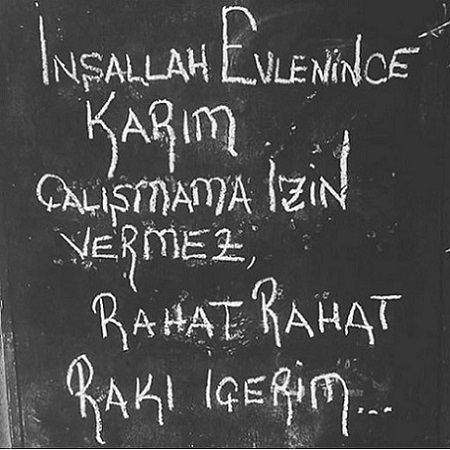 İNŞALLAH EVLENİNCE
KARIM
ÇALIŞMAMA İZİN
VERMEZ,
RAHAT RAHAT
RAKI İÇERİM...